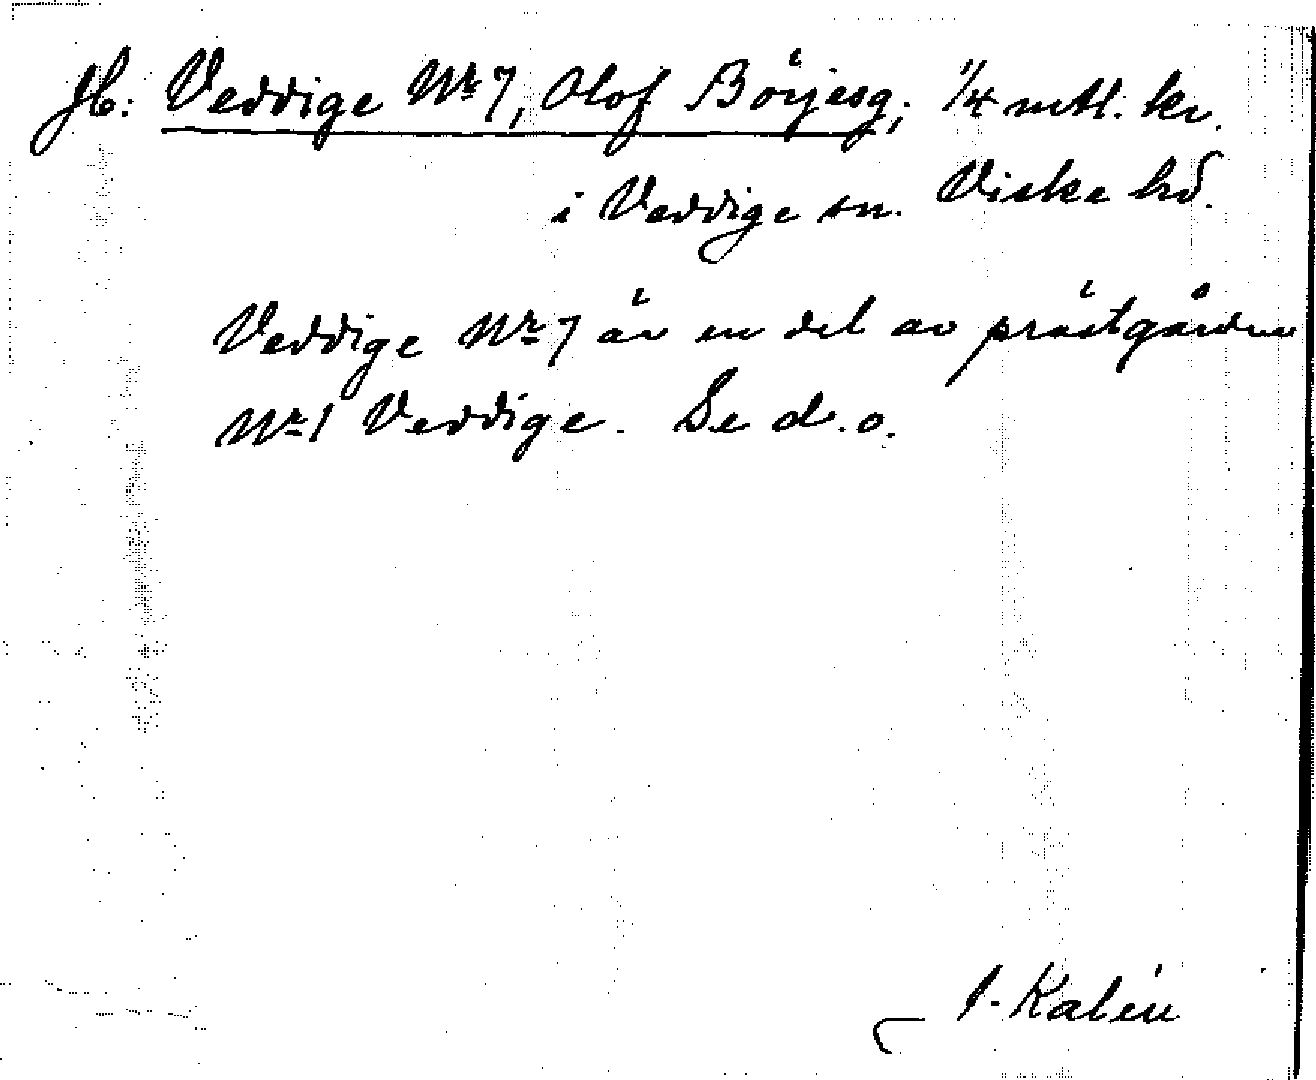 Jb: Veddige Nr 7, Olof Börjesg; 1/4 mtl. kr.
i Veddige sn. Viske hd.
Veddige Nr 7 är en del av prästgården
Nr 1 Veddige. Se d.o.
J. Kalén